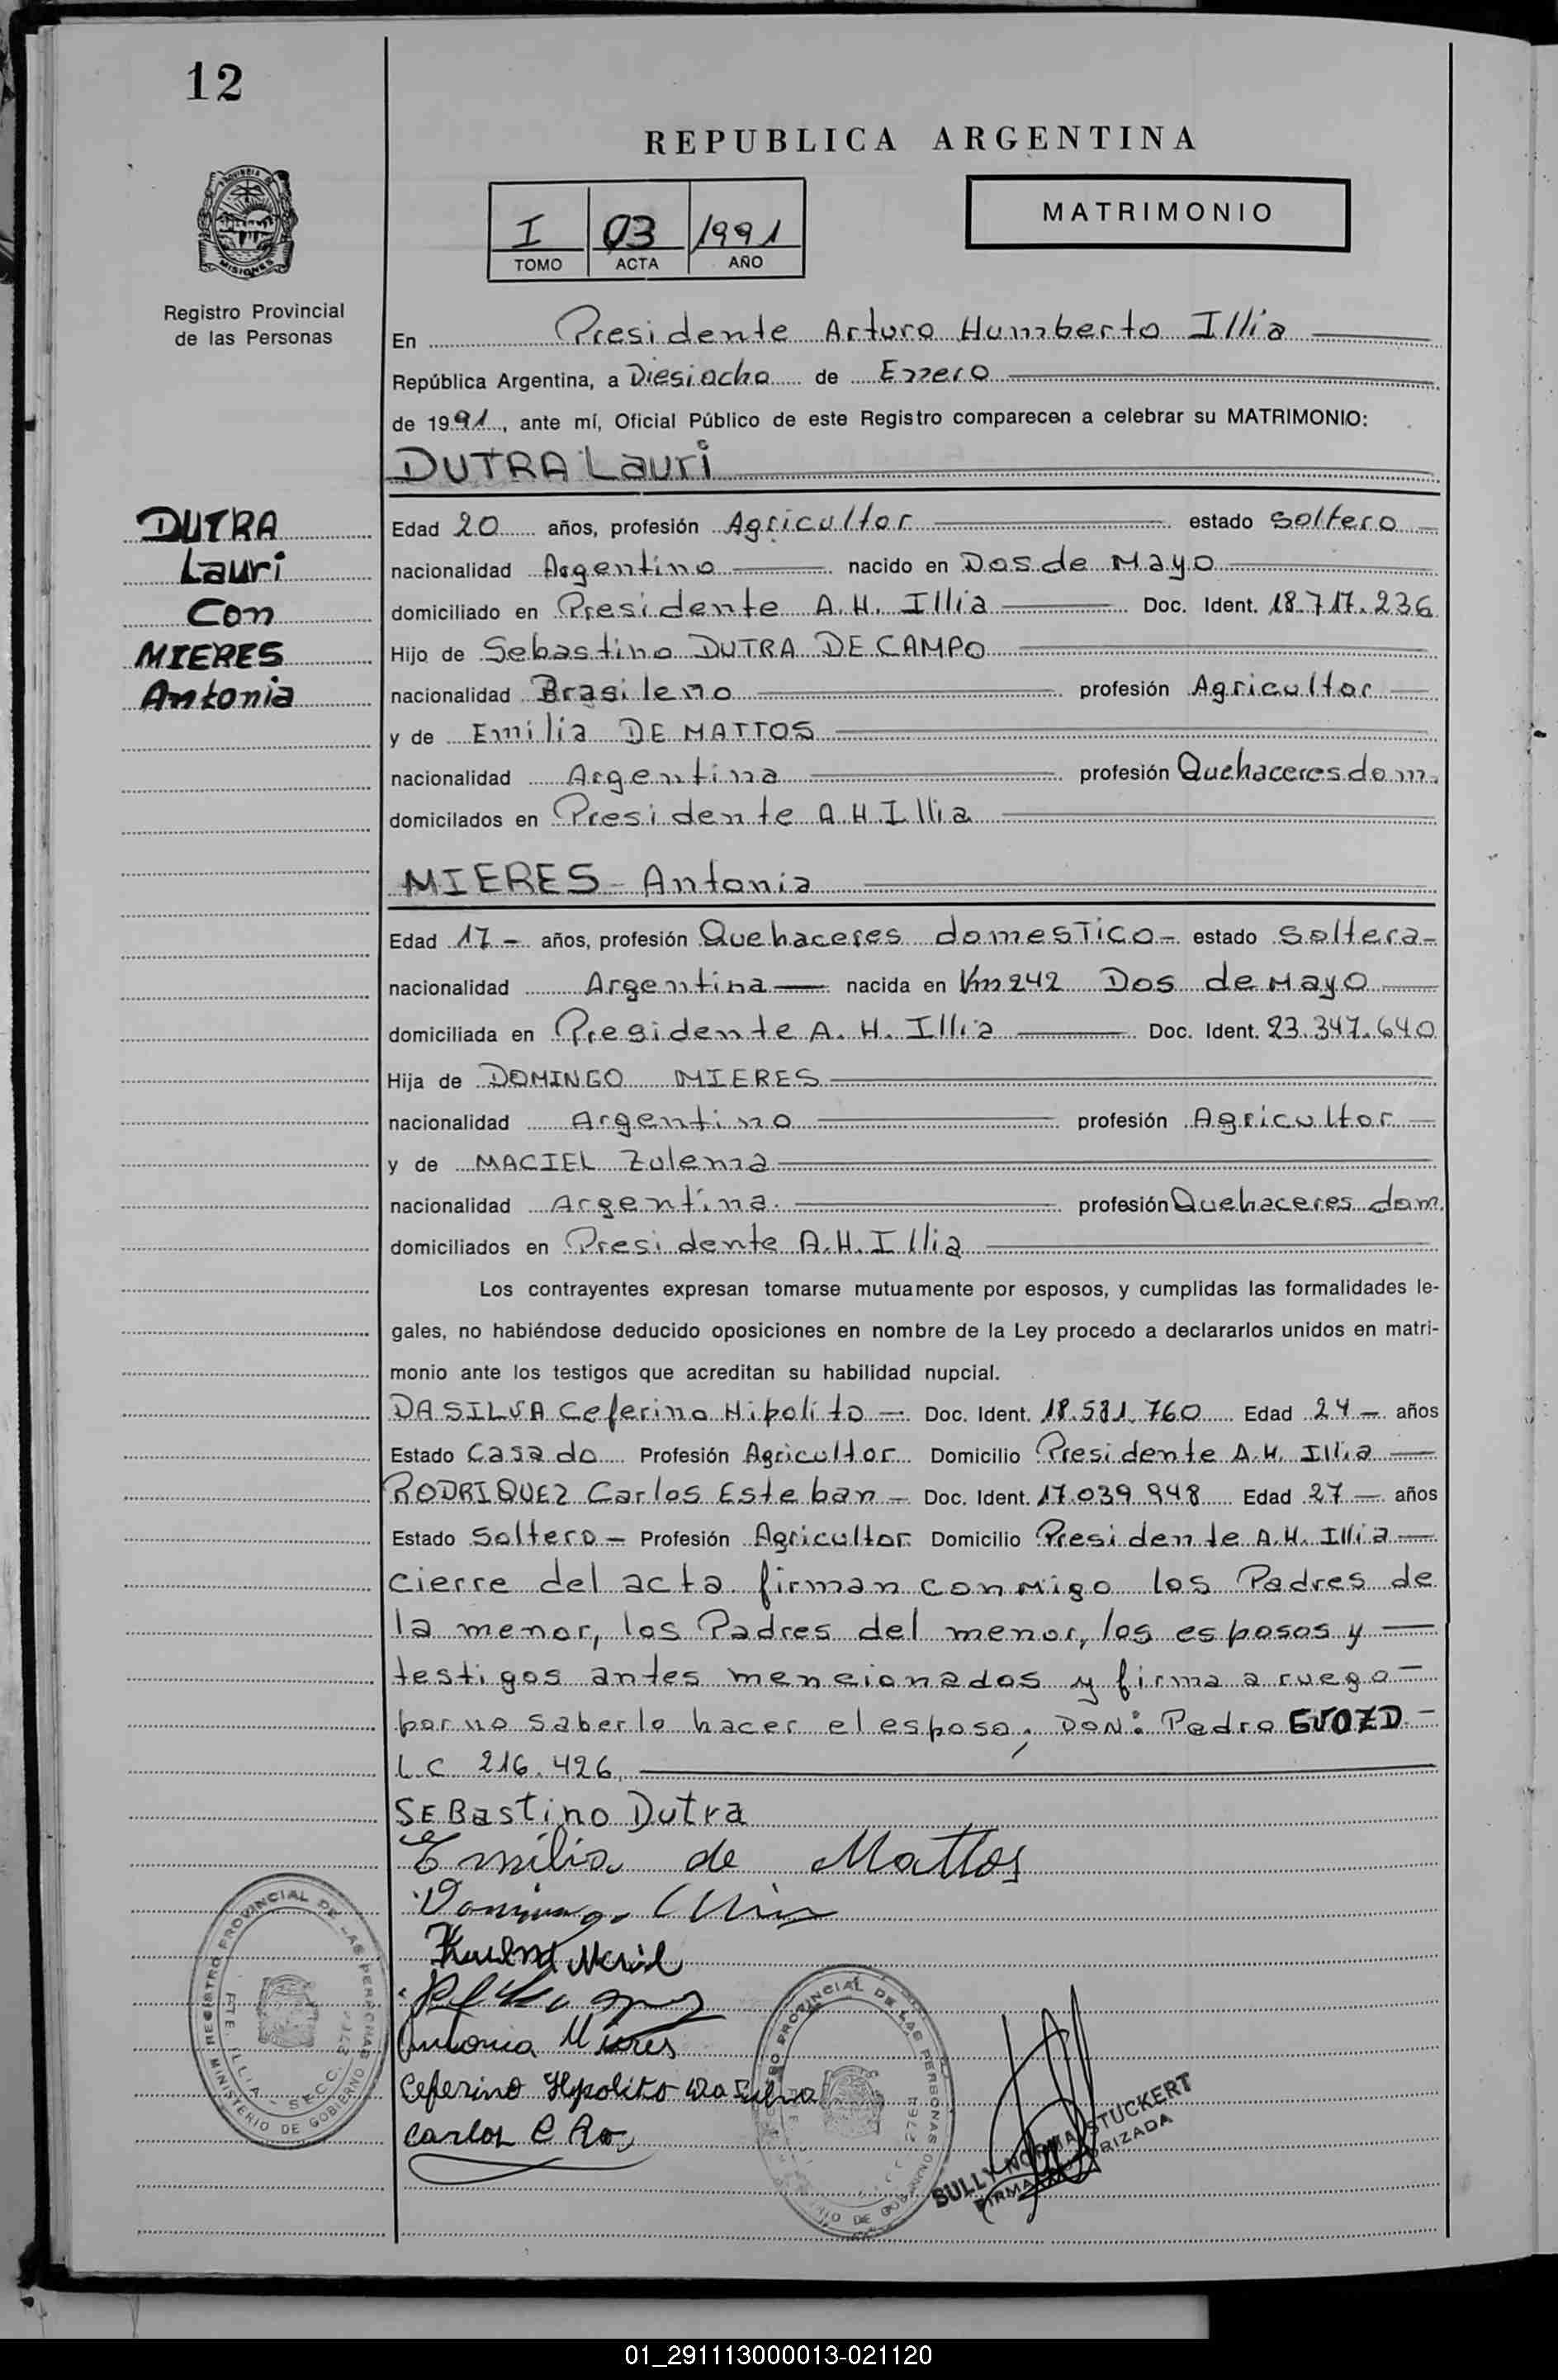 12
REPUBLICA ARGENTINA
MATRIMONIO
I 03 1991
TOMO ACTA AÑO
PROVINCIA DE
MISIONES
Registro Provincial
de las Personas
En Presidente Arturo Humberto Illia
República Argentina, a Diesiocho de Enero
de 1991, ante mí, Oficial Público de este Registro comparecen a celebrar su MATRIMONIO:
DUTRA Lauri
DUTRA
Lauri
Con
MIERES
Antonia
Edad 20 años, profesión Agricultor estado Soltero
nacionalidad Argentino nacido en Dos de Mayo
domiciliado en Presidente A.H. Illia Doc. Ident. 18.717.236
Hijo de Sebastino DUTRA DE CAMPO
nacionalidad Brasileño profesión Agricultor
y de Emilia DE MATTOS
nacionalidad Argentina profesión Quehaceres dom.
domicilados en Presidente A.H. Illia
MIERES Antonia
Edad 17 - años, profesión Quehaceres domesTico - estado Soltera -
nacionalidad Argentina nacida en Km 242 Dos de Mayo
domiciliada en Presidente A.H. Illia Doc. Ident. 23.347.640
Hija de DOMINGO MIERES
nacionalidad Argentino profesión Agricultor
y de MACIEL Zulema
nacionalidad Argentina. profesión Quehaceres dom.
domiciliados en Presidente A.H. Illia
Los contrayentes expresan tomarse mutuamente por esposos, y cumplidas las formalidades le-
gales, no habiéndose deducido oposiciones en nombre de la Ley procedo a declararlos unidos en matri-
monio ante los testigos que acreditan su habilidad nupcial.
DASILVA Ceferino Hipolito - Doc. Ident. 18.581.760 Edad 24 - años
Estado Casado Profesión Agricultor Domicilio Presidente A.H. Illia
RODRIQUEZ Carlos Esteban - Doc. Ident. 17.039.948 Edad 27 - años
Estado Soltero - Profesión Agricultor Domicilio Presidente A.H. Illia
cierre del acta firman conmigo los Padres de
la menor, los Padres del menor, los esposos y
testigos antes mencionados y firma a ruego -
por no saberlo hacer el esposo, DON: Pedro GVOZD. -
L.C 216.426.
SEBastino Dutra
Emilia de Mattos
Domingo
Antonia Mieres
Ceferino Hypolito Da Silva
Carlos E Ro
REGISTRO PROVINCIAL DE LAS PERSONAS
PTE. ILLIA - SECC. 2764
MINISTERIO DE GOBIERNO
REGISTRO PROVINCIAL DE LAS PERSONAS
2764
MINISTERIO DE GOBIERNO
SULLY NORMA STUCKERT
FIRMA AUTORIZADA
01_291113000013-021120